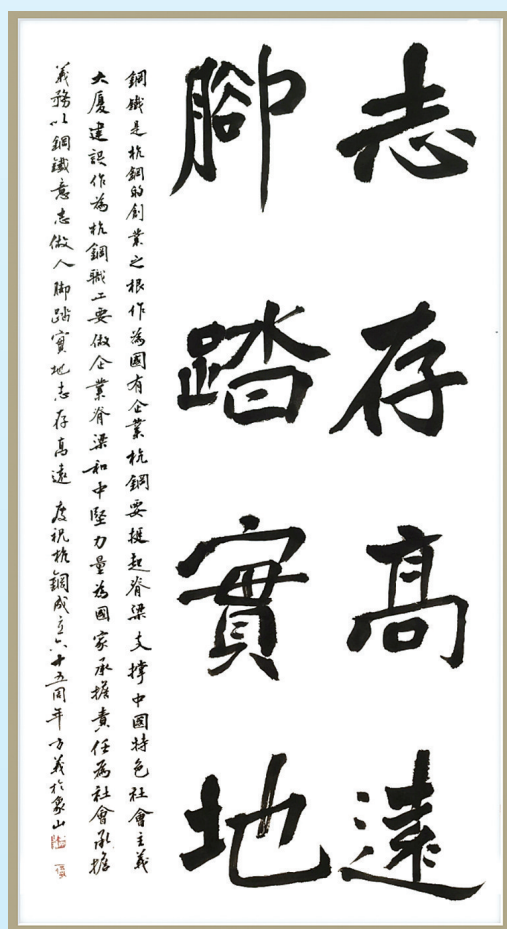 志存高遠
腳踏實地
鋼鐵是杭鋼的創業之根作為國有企業杭鋼要挺起脊梁支撐中國特色社會主義
大廈建設作為杭鋼職工要做企業脊梁和中堅力量為國家承擔責任為社會承擔
義務以鋼鐵意志做人腳踏實地志存高遠 慶祝杭鋼成立六十五周年 方義於象山